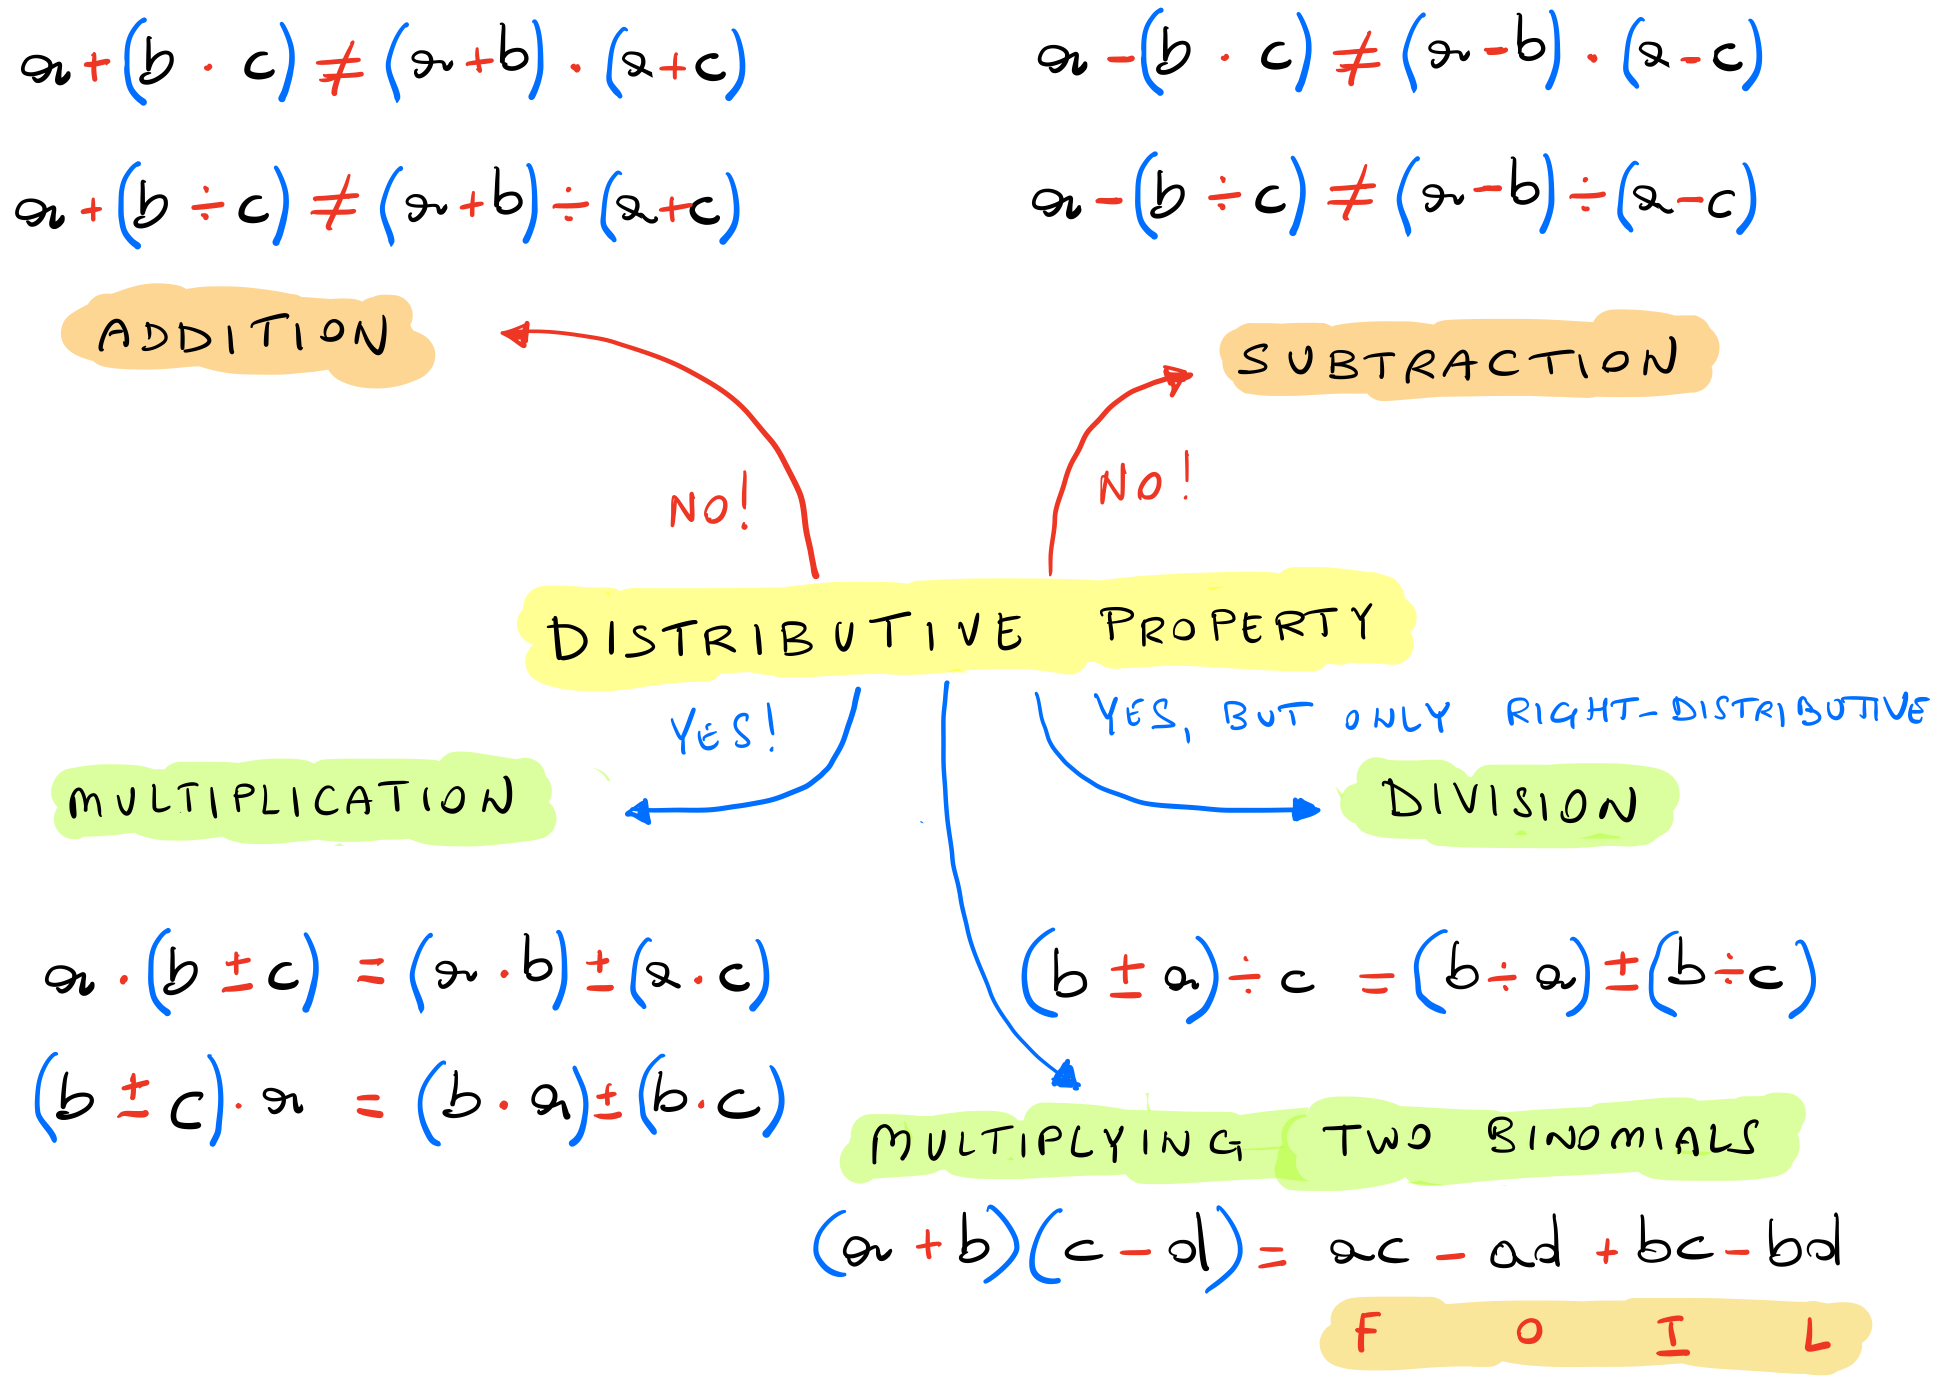 a + (b · c) ≠ (a + b) · (a + c)
a - (b · c) ≠ (a - b) · (a - c)
a + (b ÷ c) ≠ (a + b) ÷ (a + c)
a - (b ÷ c) ≠ (a - b) ÷ (a - c)
ADDITION
SUBTRACTION
NO!
NO!
DISTRIBUTIVE PROPERTY
YES!
YES, BUT ONLY RIGHT-DISTRIBUTIVE
MULTIPLICATION
DIVISION
a · (b ± c) = (a · b) ± (a · c)
(b ± a) ÷ c = (b ÷ a) ± (b ÷ c)
(b ± c) · a = (b · a) ± (b · c)
MULTIPLYING TWO BINOMIALS
(a + b)(c - d) = ac - ad + bc - bd
F O I L